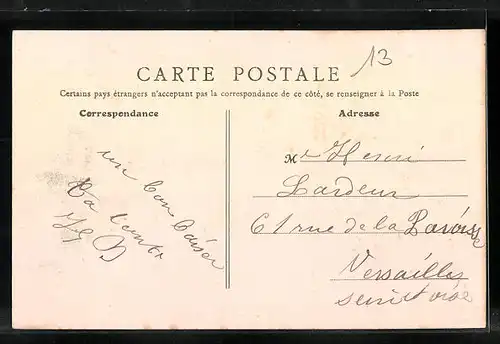 13
CARTE POSTALE
Certains pays étrangers n'acceptant pas la correspondance de ce côté, se renseigner à la Poste
Correspondance
Adresse
un bon baiser
Ta tante
Mr Henri
Lardeur
61 rue de la Paroisse
Versailles
seine et oise